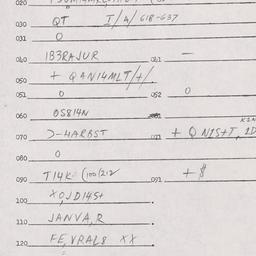 020
030 QT I/4/618-637
031 0
040 1B3RAJUR 041 —
050 + QAN14MLT/+/
051 0 052 0
060 OS814N
070 D-4ARBST 071 + QN1S+T, 1D
080 0
090 T14K (100/212 091 + $
100 XO,JD14S+
110 JANVA,R
120 FE,VRAL8 XX